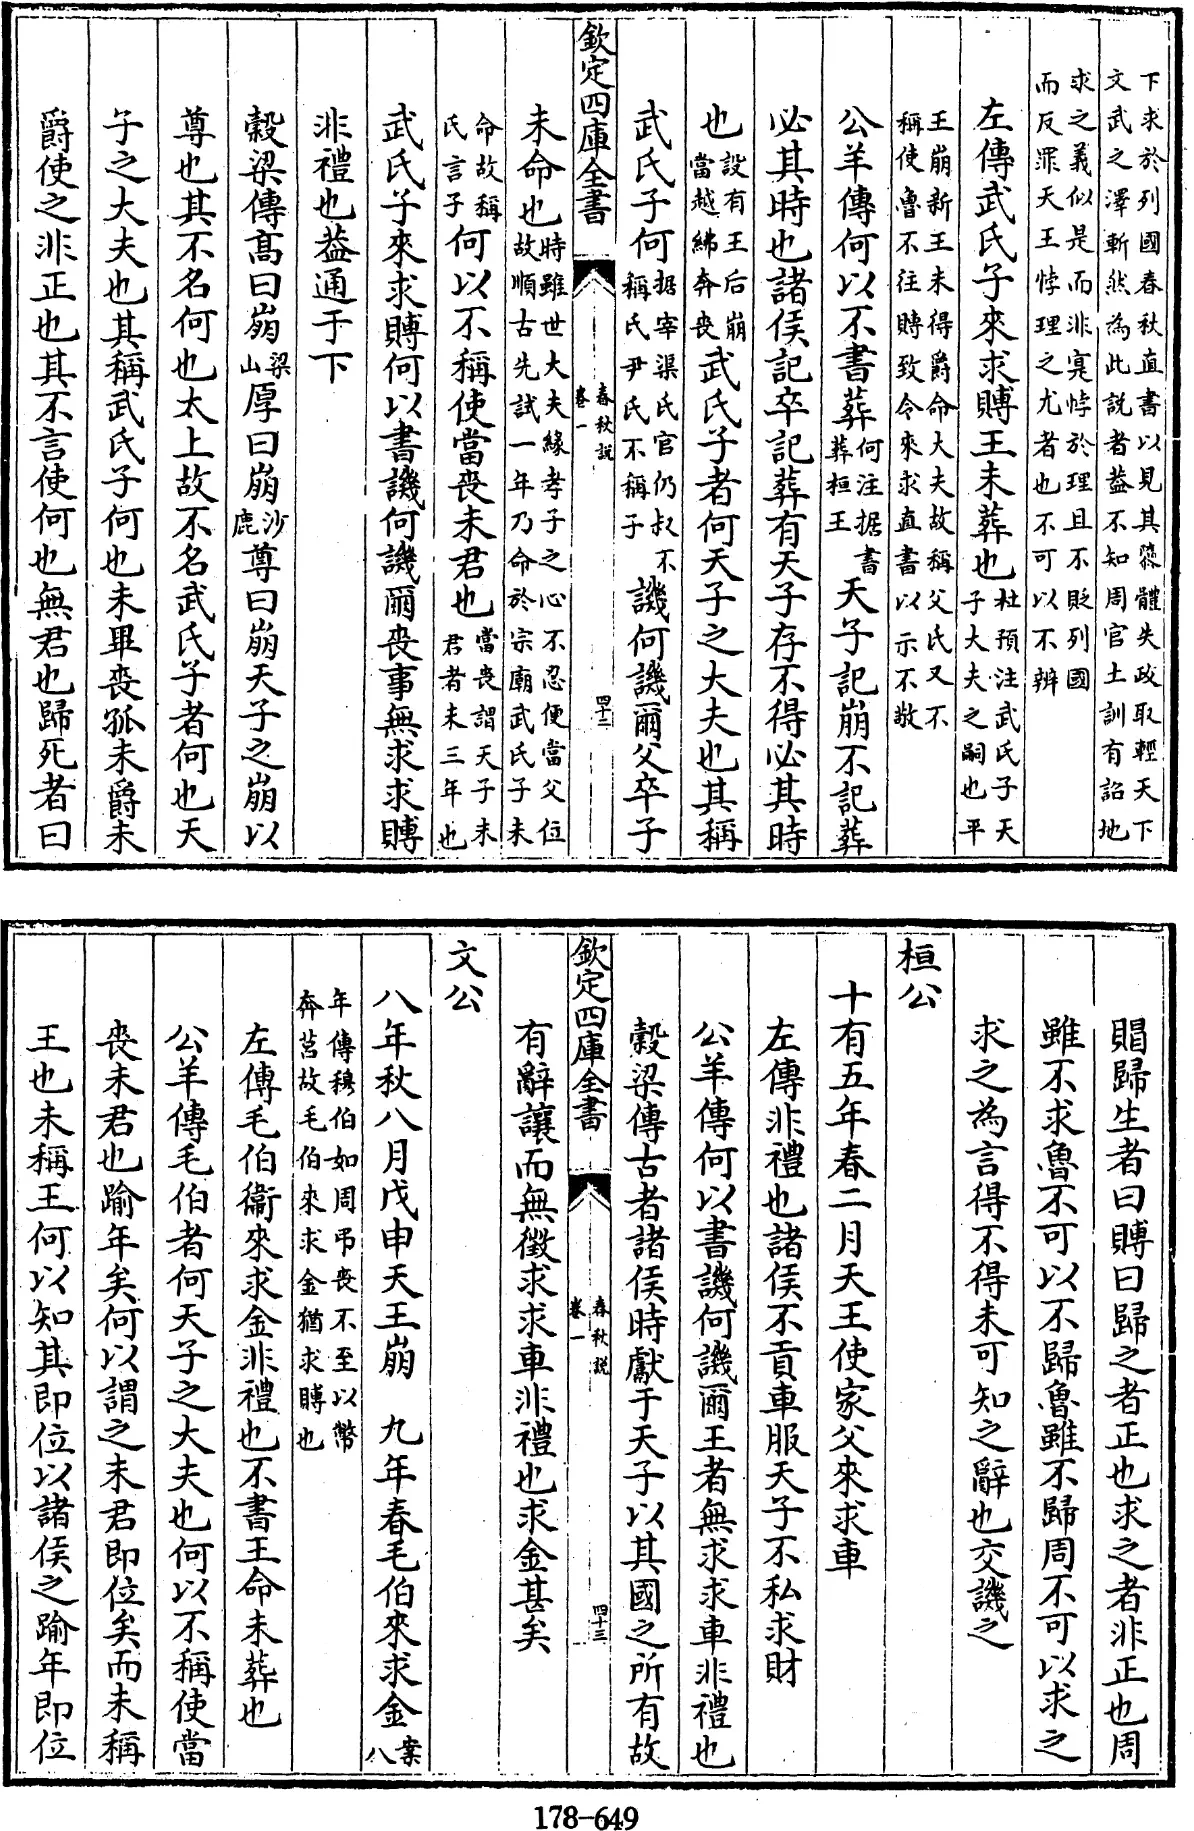 下求於列國春秋直書以見其禮體失政取輕天下
文武之澤斬然為此說者葢不知周官土訓有詔地
求之義似是而非寔悖於理且不貶列國
而反罪天王悖理之尤者也不可以不辨
左傳武氏子來求賻王未葬也杜預注武氏子天
子大夫之嗣也平
王崩新王未得爵命大夫故稱父氏又不
稱使魯不往賻致令來求直書以示不敬
公羊傳何以不書葬何注据書
葬桓王天子記崩不記葬
必其時也諸侯記卒記葬有天子存不得必其時
也設有王后崩
當越紼奔喪武氏子者何天子之大夫也其稱
武氏子何据宰渠氏官仍叔不
稱氏尹氏不稱子譏何譏爾父卒子
欽定四庫全書
春秋說
卷一
四十二
未命也時雖世大夫緣孝子之心不忍便當父位
故順古先試一年乃命於宗廟武氏子未
命故稱
氏言子何以不稱使當喪未君也當喪謂天子未
君者未三年也
武氏子來求賻何以書譏何譏爾喪事無求求賻
非禮也葢通于下
穀梁傳高曰崩梁
山厚曰崩沙
鹿尊曰崩天子之崩以
尊也其不名何也太上故不名武氏子者何也天
子之大夫也其稱武氏子何也未畢喪孤未爵未
爵使之非正也其不言使何也無君也歸死者曰
賵歸生者曰賻曰歸之者正也求之者非正也周
雖不求魯不可以不歸魯雖不歸周不可以求之
求之為言得不得未可知之辭也交譏之
桓公
十有五年春二月天王使家父來求車
左傳非禮也諸侯不貢車服天子不私求財
公羊傳何以書譏何譏爾王者無求求車非禮也
穀梁傳古者諸侯時獻于天子以其國之所有故
欽定四庫全書
春秋說
卷一
四十三
有辭讓而無徵求求車非禮也求金甚矣
文公
八年秋八月戊申天王崩　九年春毛伯來求金案
八
年傳穆伯如周弔喪不至以幣
奔莒故毛伯來求金猶求賻也
左傳毛伯衛來求金非禮也不書王命未葬也
公羊傳毛伯者何天子之大夫也何以不稱使當
喪未君也踰年矣何以謂之未君即位矣而未稱
王也未稱王何以知其即位以諸侯之踰年即位
178-649